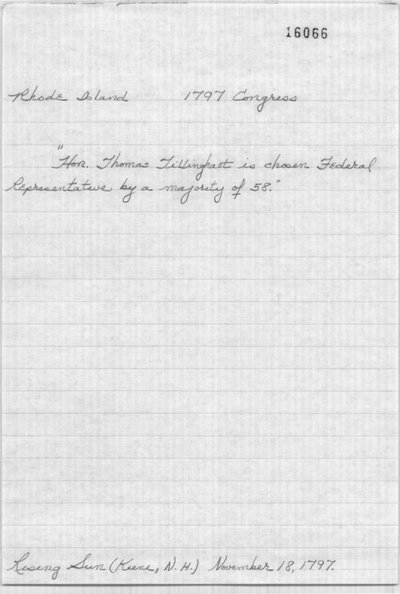 16066
Rhode Island 1797 Congress
"Hon. Thomas Tillinghast is chosen Federal
Representative by a majority of 58."
Rising Sun (Keene, N.H.) November 18, 1797.